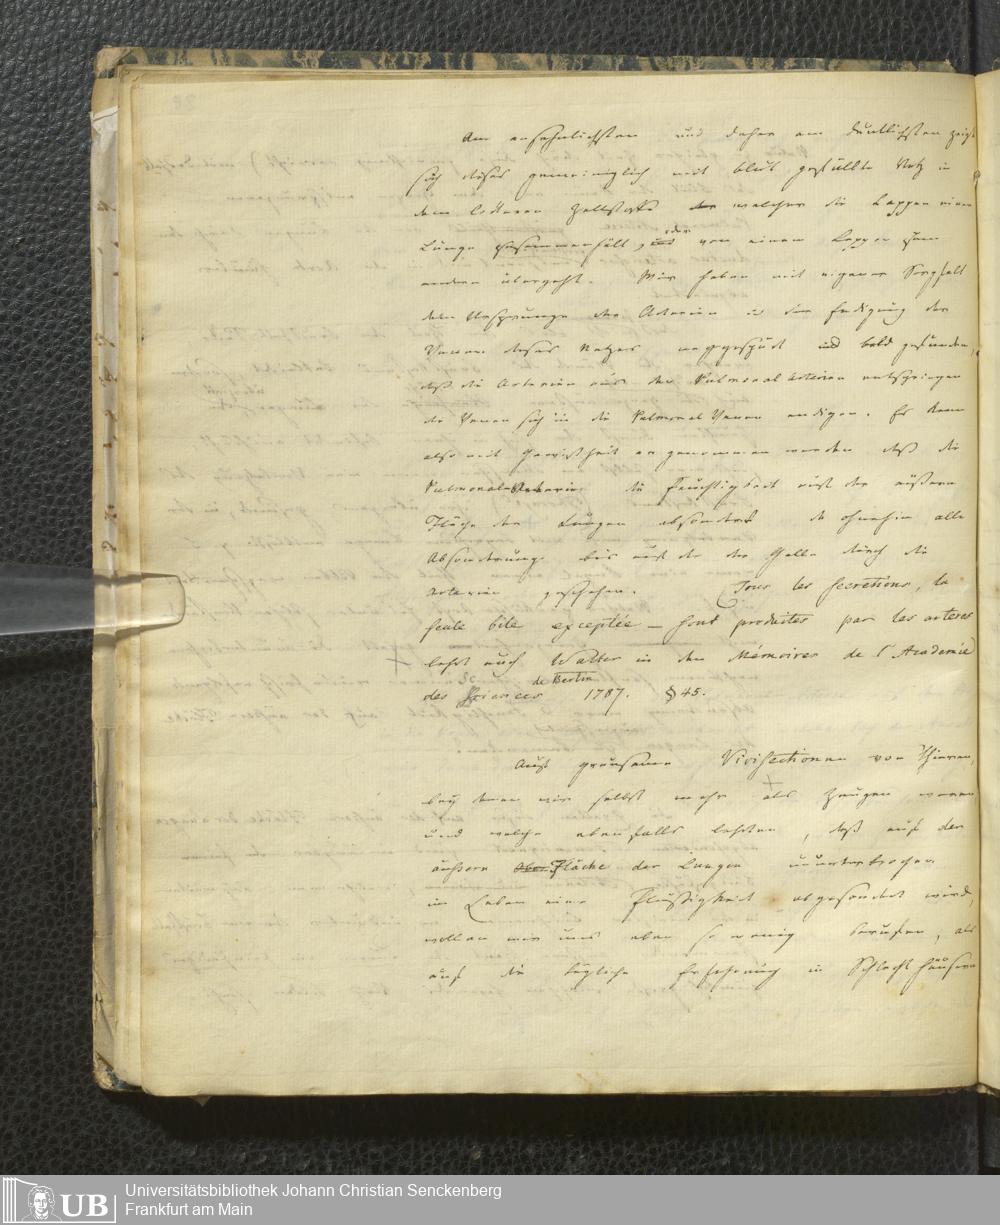 Am ansehnlichsten und daher am deutlichsten zeigt
sich dieses gemeiniglich mit Blut gefüllte Netz in
dem lockeren Zellstoffe welcher die Lappen einer
Lunge zusammenhält, oder von einem Lappen zum
andern übergeht. Wir haben mit eigener Sorgfalt
dem Ursprunge der Arterien u die Endigung der
Venen dieses Netzes nachgespürt und bald gefunden,
daß die Arterien aus den Pulmonal Arterien entspringen
die Venen sich in die Pulmonal Venen endigen. Es kann
also mit Gewißheit angenommen werden daß die
Pulmonal Arterien die Feuchtigkeit auf der äußern
Fläche der Lungen absondert da ohnehin alle
Absonderung bis auf die der Galle durch die
Arterien geschehen. (Tous les secretions, la
seule bile exceptée – sont produites par les arteres
lehrt auch Walter in den Mémoires de l'Academie
des Sciences de Berlin 1787. § 45.
Auf grausame Vivisectionen von Thieren,
bey denen wir selbst mehr als Zeugen waren
und welche ebenfalls lehrten, daß auf der
äußern Fläche der Lungen ununterbrochen
im Leben eine Flüssigkeit abgesondert wird,
wollen wir uns eben so wenig berufen, als
auf die tägliche Erfahrung in Schlachthäusern
Universitätsbibliothek Johann Christian Senckenberg
Frankfurt am Main
UB